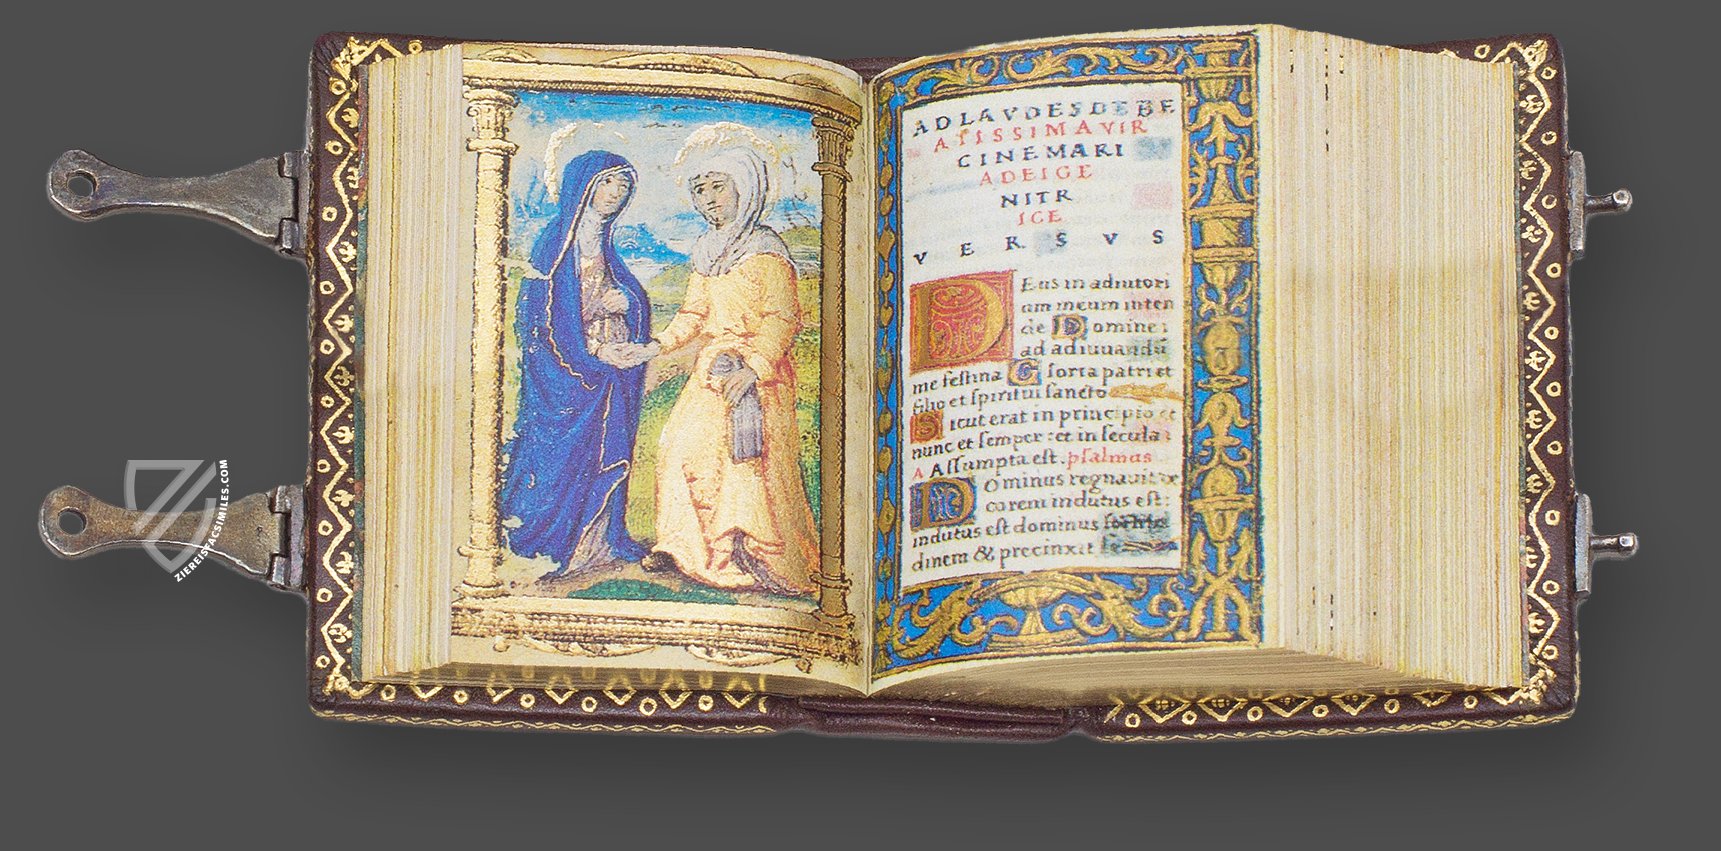 ADLAVDESDEBE
ATISSIMAVIR
CINEMARI
ADEIGE
NITR
ICE
VERSVS
DEus in adiutori
um meum inten
de Domine:
ad adiuuandū
me festina Gloria patri et
filio et spiritui sancto
Sicut erat in principio et
nunc et semper: et in secula
A Assumpta est. psalmus
Dominus regnauit de
corem indutus est:
indutus est dominus fortitu
dinem & precinxit se
ZIEREISFACSIMILES.COM